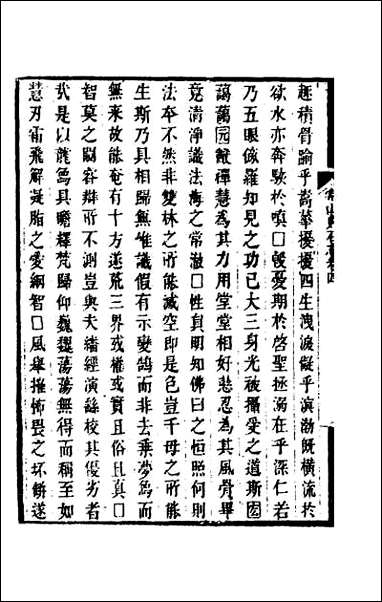 常山貞石志卷四
趍積骨踰乎嵩華擾擾四生洩淚疑乎溟渤旣橫流於
欲水亦奔駛於嗔□殷憂期於啓聖拯溺在乎深仁若
乃五眼傢羅知見之功已大三身光被攝受之道斯固
藹藹园禪慧為其力用堂堂相好悲忍為其風骨畢
竟清淨識法海之常澈□性真明知佛日之恒照何則
法本不然非雙林之所能滅空即是色豈千母之所能
生斯乃具相歸無惟識假有示變鵠而非去乘夢象而
無来故能奄有十方遮荒三界或權或實且俗且真□
智莫之闚容辯所不測豈與夫繙經演繇校其優劣者
哉是以龍象具瞻釋梵歸仰巍巍蕩蕩無得而稱至如
慧刃霜飛解凝脂之愛網智□風舉摧怖畏之坏缾遂